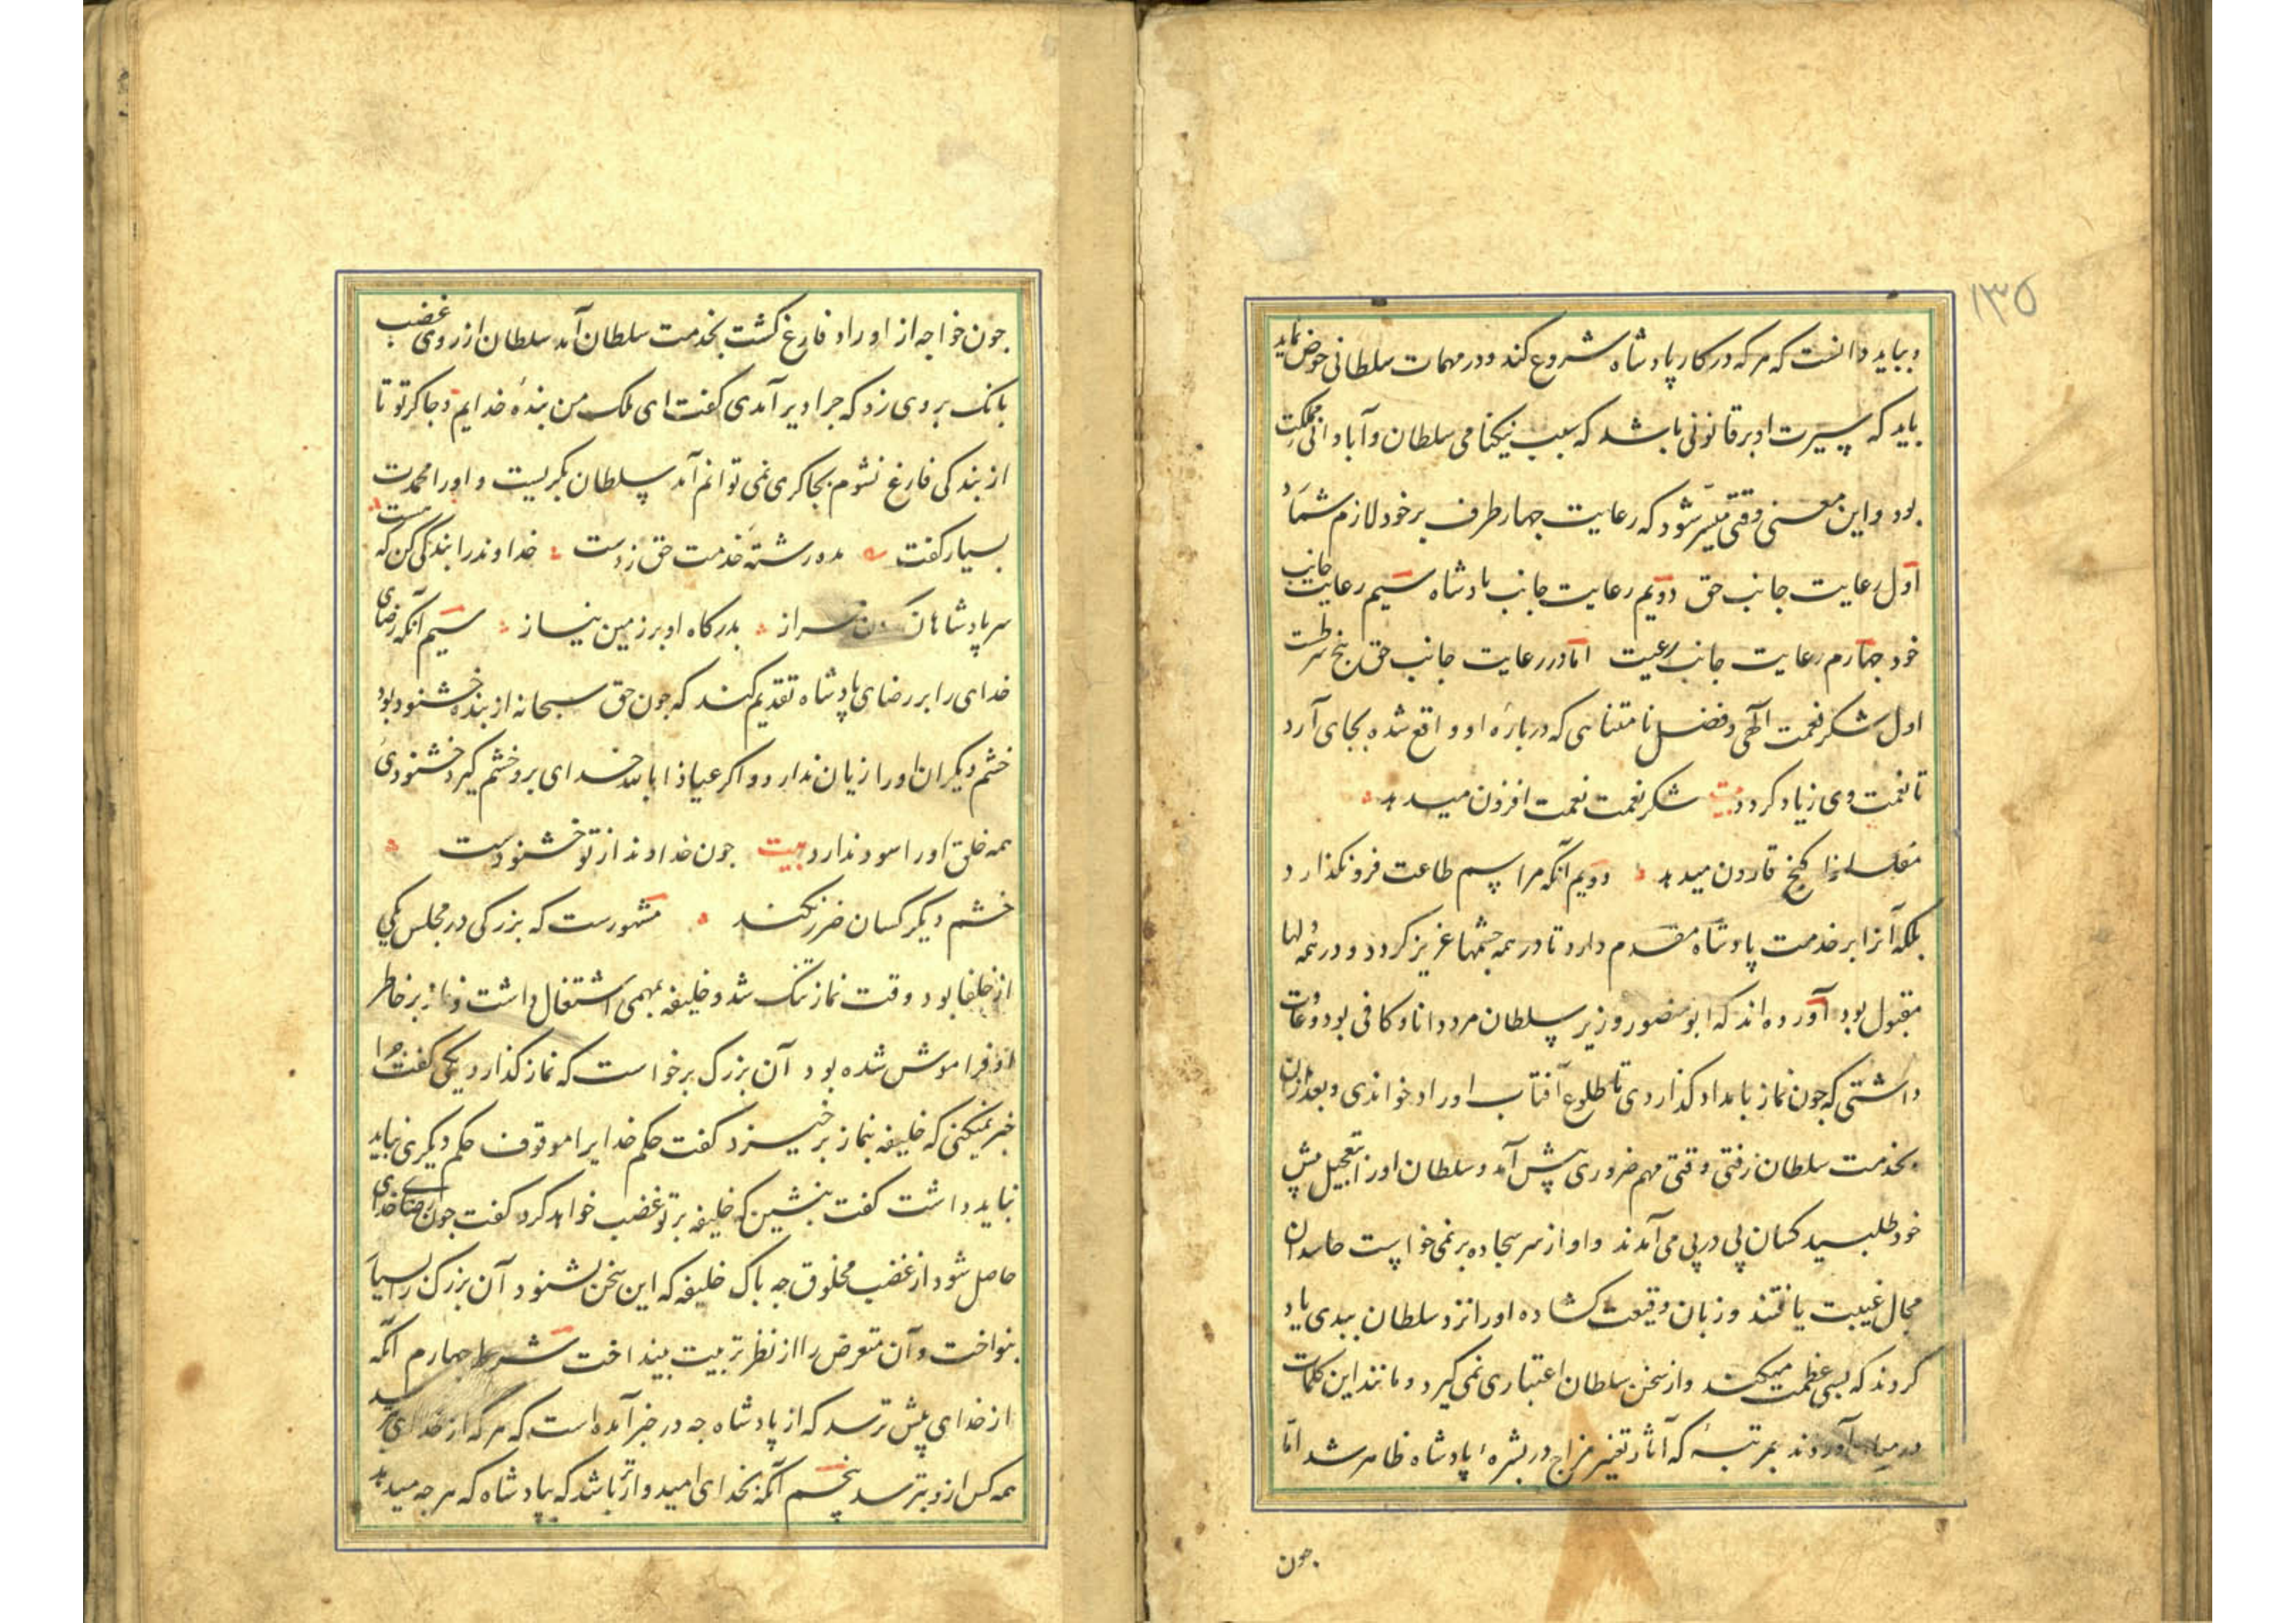 ۱۳۵
و بباید دانست که هر که در کار پادشاه شروع کند و در مهمات سلطانی خوض نماید
باید که سیرت او بر قانونی باشد که سبب نیکنامی سلطان و آبادانی مملکت
بود و این معنی وقتی میسر شود که رعایت جهار طرف بر خود لازم شمارد
اول رعایت جانب حق دویم رعایت جانب پادشاه سیم رعایت جانب
خود جهارم رعایت جانب رعیت اما در رعایت جانب حق پنج شرطست
اول شکر نعمت الهی و فضل نامتناهی که درباره او واقع شده بجای آرد
تا نعمت وی زیاد کردد بیت شکر نعمت نعمت افزون میدهد
مفلسانرا کنج قارون میدهد دویم آنکه مراسم طاعت فرو نکذارد
بلکه آنرا بر خدمت پادشاه مقدم دارد تا در همه جشمها عزیز کردد و در همه دلها
مقبول بود آورده اند که ابو منصور وزیر سلطان مرد دانا و کافی بود و عادت
داشتی که جون نماز بامداد کذاردی تا طلوع آفتاب اوراد خواندی و بعد از آن
بخدمت سلطان رفتی وقتی مهم ضروری پیش آمد و سلطان اورا بتعجیل پیش
خود طلبید کسان پی در پی می آمدند و او از سر سجاده بر نمی خواست حاسدان
مجال غیبت یافتند و زبان وقیعت کشاده اورا نزد سلطان ببدی یاد
کردند که بسی عظمت میکند و از سخن سلطان اعتباری نمی کیرد و مانند این کلمات
در میان آوردند بمرتبهٔ که آثار تغیر مزاج در بشرهٔ پادشاه ظاهر شد اما
جون
جون خواجه از اوراد فارغ کشت بخدمت سلطان آمد سلطان از روی غضب
بانک بر وی زد که جرا دیر آمدی کفت ای ملک من بندهٔ خدایم و جاکر تو تا
از بندکی فارغ نشوم بجاکری نمی توانم آمد سلطان بکریست و اورا محمدت
بسیار کفت مده رشتهٔ خدمت حق ز دست خداوند را بندکی کن که هست
سر پادشاهان کردن فراز بدرکاه او بر زمین نیاز سیم آنکه رضای
خدای را بر رضای پادشاه تقدیم کند که جون حق سبحانه از بنده خشنود بود
خشم دیکران اورا زیان ندارد و اکر عیاذا بالله خدای برو خشم کیرد خشنودی
همه خلق اورا سود ندارد بیت جون خداوند از تو خشنودست
خشم دیکر کسان ضرر نکند مشهورست که بزرکی در مجلس یکی
از خلفا بود وقت نماز تنک شد و خلیفه بمهمی اشتغال داشت و نماز بر خاطر
او فراموش شده بود آن بزرک برخواست که نماز کذارد یکی کفت جرا
خبر نمیکنی که خلیفه بنماز برخیزد کفت حکم خدایرا موقوف حکم دیکری نباید
نباید داشت کفت بنشین که خلیفه بر تو غضب خواهد کرد کفت جون رضای خدای
حاصل شود از غضب مخلوق جه باک خلیفه که این سخن بشنود آن بزرک را بسیار
بنواخت و آن متعرض را از نظر تربیت بینداخت شرط جهارم آنکه
از خدای بیش ترسد که از پادشاه جه در خبر آمده است که هر که از خدای ترسد
همه کس ازو بترسد پنجم آنکه بخدای امیدوارتر باشد که بپادشاه که هر جه میدهد